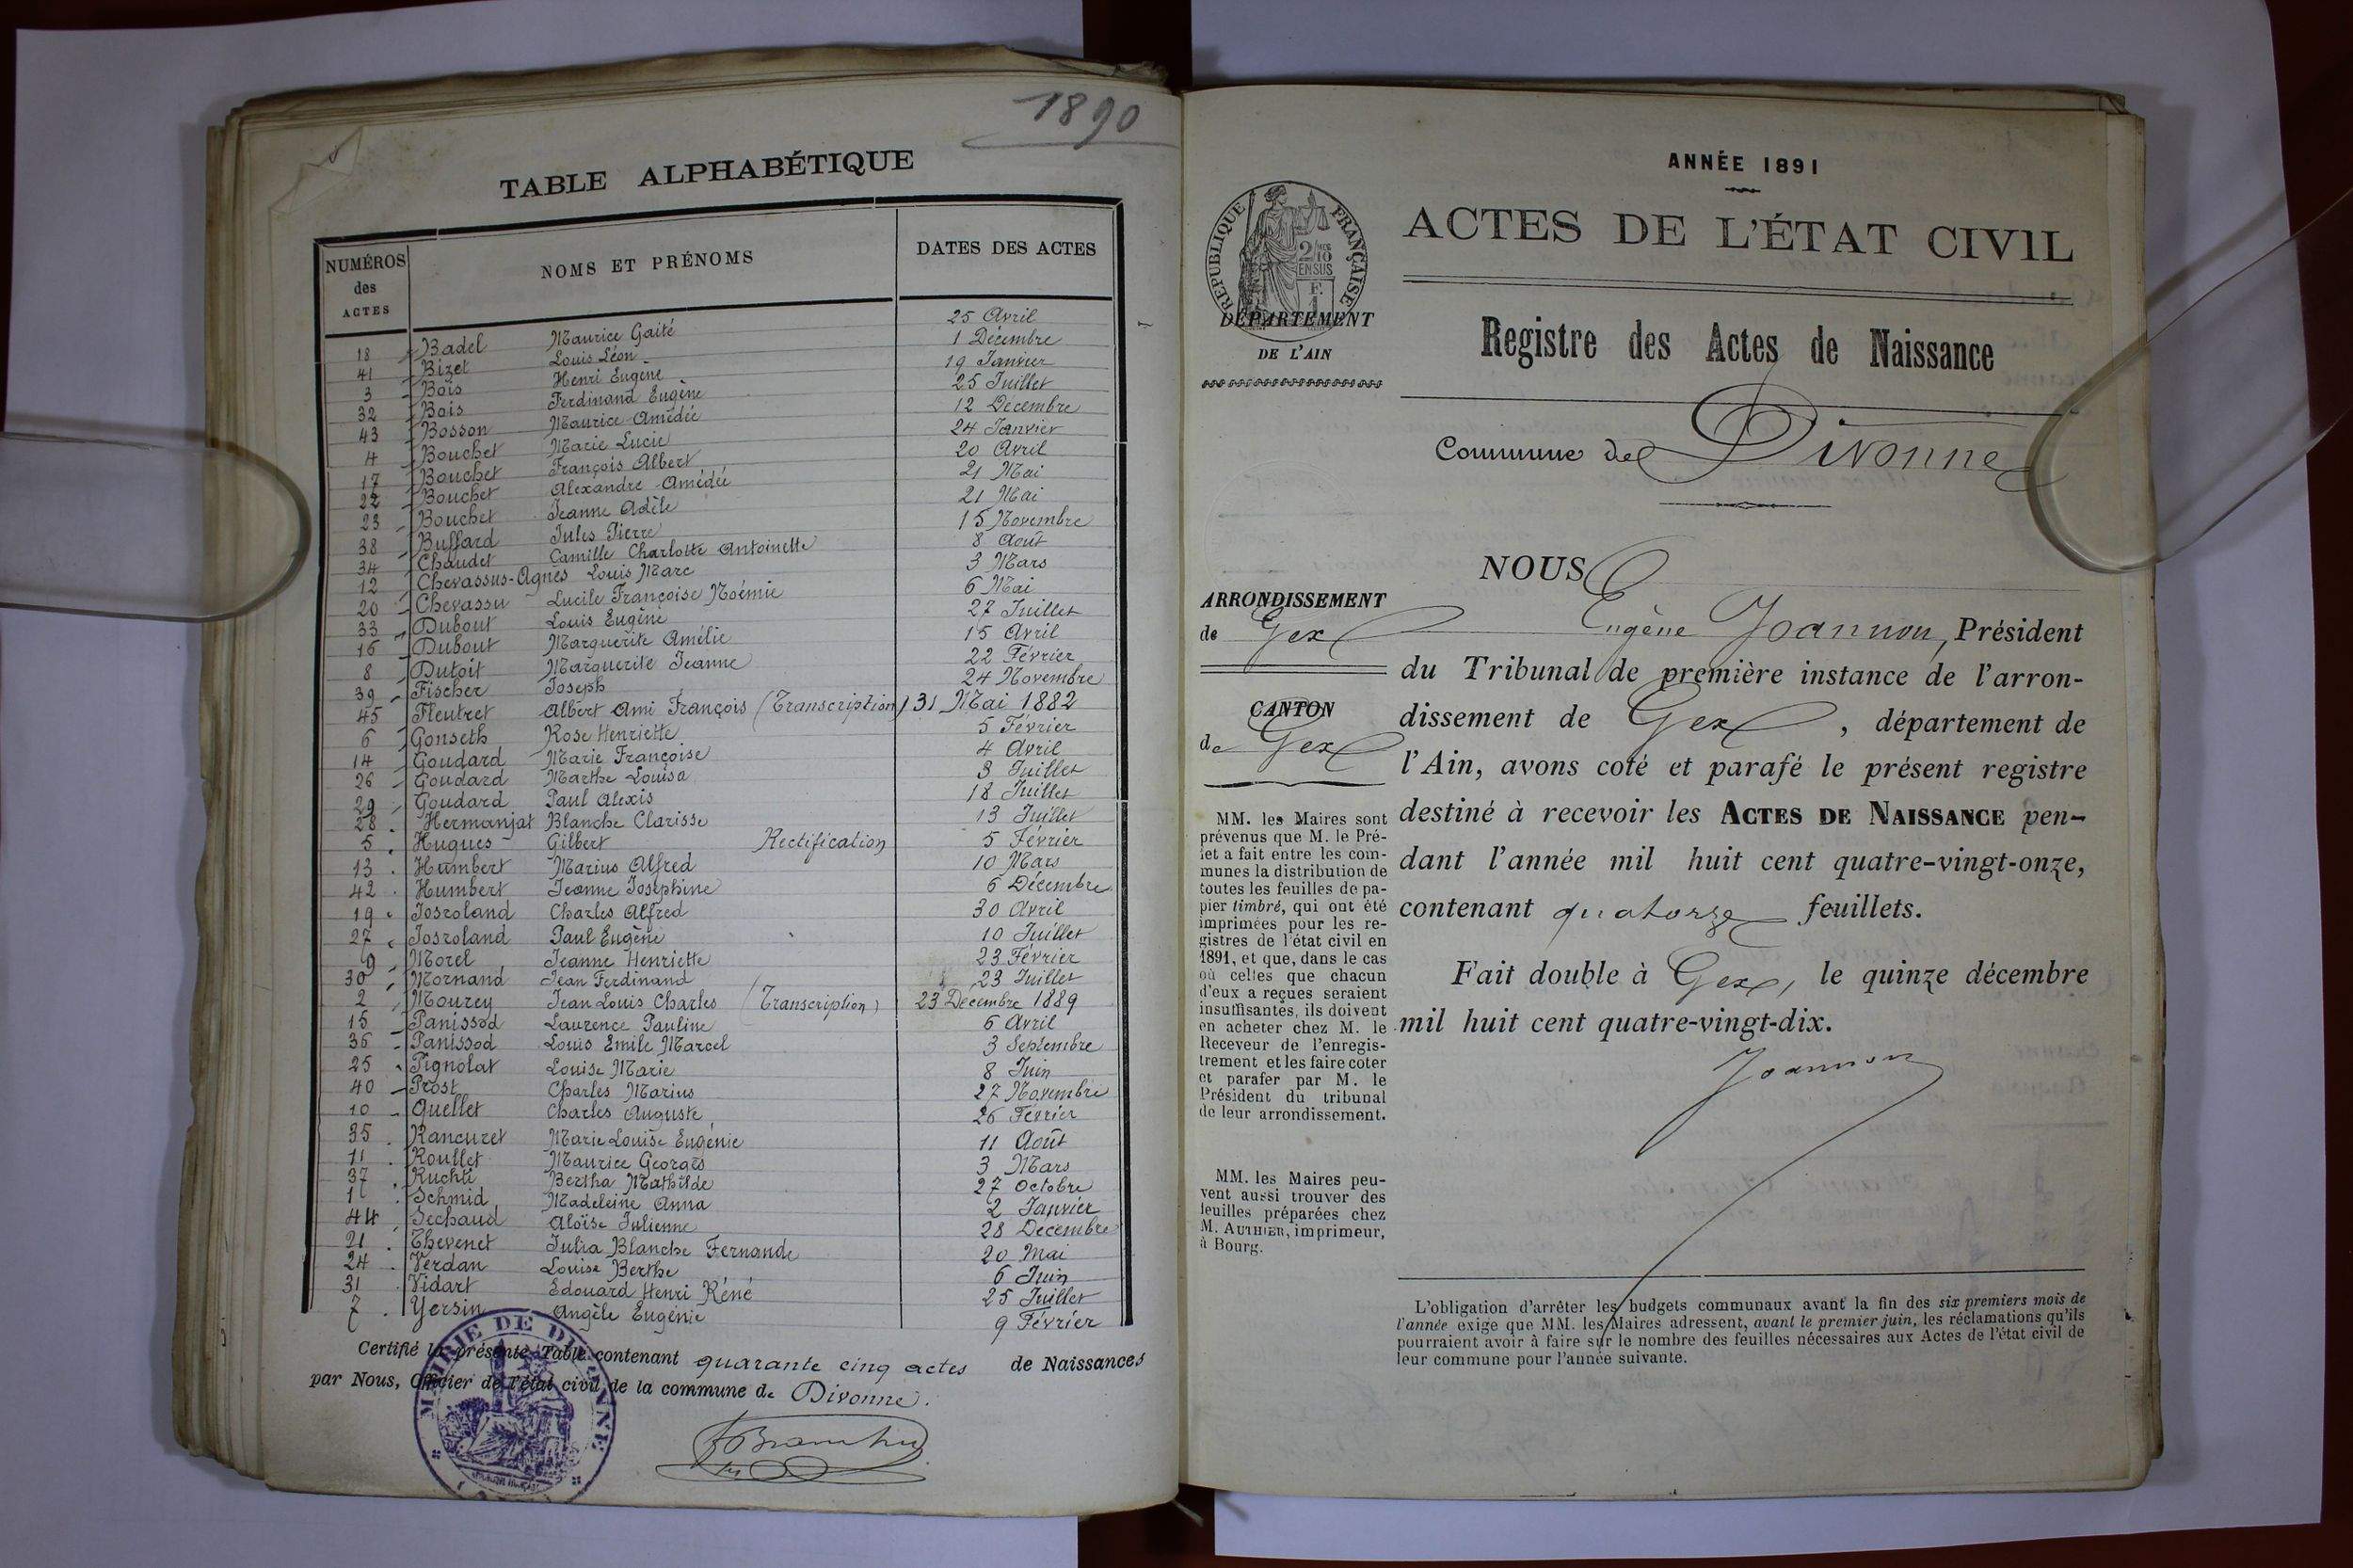 1890
TABLE ALPHABÉTIQUE
NUMÉROS des ACTES NOMS ET PRÉNOMS DATES DES ACTES
18 Badel Maurice Gaité 25 Avril
41 Bizet Louis Léon 1 Décembre
3 Bois Henri Eugène 19 Janvier
32 Bois Ferdinand Eugène 25 Juillet
43 Bosson Maurice Amédée 12 Décembre
4 Bouchet Marie Lucie 24 Janvier
17 Bouchet François Albert 20 Avril
22 Bouchet Alexandre Amédée 21 Mai
23 Bouchet Jeanne Adèle 21 Mai
38 Buffard Jules Pierre 15 Novembre
34 Chaudet Camille Charlotte Antoinette 8 Août
12 Chevassus-Agnès Louis Marc 3 Mars
20 Chevassu Lucile Françoise Noémie 6 Mai
33 Dubout Louis Eugène 27 Juillet
16 Dubout Marguerite Amélie 15 Avril
8 Dutoit Marguerite Jeanne 22 Février
39 Fischer Joseph 24 Novembre
45 Fleutret Albert Ami François (Transcription) 31 Mai 1882
6 Gonseth Rose Henriette 5 Février
14 Goudard Marie Françoise 4 Avril
26 Goudard Marthe Louisa 3 Juillet
29 Goudard Paul Alexis 18 Juillet
28 Hermanjat Blanche Clarisse 13 Juillet
5 Hugues Gilbert Rectification 5 Février
13 Humbert Marius Alfred 10 Mars
42 Humbert Jeanne Joséphine 6 Décembre
19 Josroland Charles Alfred 30 Avril
27 Josroland Paul Eugène 10 Juillet
9 Morel Jeanne Henriette 23 Février
30 Mornand Jean Ferdinand 23 Juillet
2 Mourey Jean Louis Charles (Transcription) 23 Décembre 1889
15 Panissod Laurence Pauline 6 Avril
36 Panissod Louis Emile Marcel 3 Septembre
25 Pignolat Louise Marie 8 Juin
40 Prost Charles Marius 27 Novembre
10 Quellet Charles Auguste 26 Février
35 Rancuret Marie Louise Eugénie 11 Août
11 Roullet Maurice Georges 3 Mars
37 Ruchti Bertha Mathilde 27 Octobre
1 Schmid Madeleine Anna 2 Janvier
44 Sechaud Aloïse Julienne 28 Décembre
21 Thevenet Julia Blanche Fernande 20 Mai
24 Verdan Louise Berthe 6 Juin
31 Vidart Edouard Henri Réné 25 Juillet
7 Yersin Angèle Eugénie 9 Février
Certifié la présente Table contenant quarante cinq actes de Naissances
par Nous, Officier de l'état civil de la commune de Divonne.
MAIRIE DE DIVONNE
ANNÉE 1891
RÉPUBLIQUE FRANÇAISE
2/10 EN SUS
F. 1
ACTES DE L'ÉTAT CIVIL
DÉPARTEMENT
DE L'AIN
Registre des Actes de Naissance
Commune de Divonne
ARRONDISSEMENT
de Gex
CANTON
de Gex
MM. les Maires sont
prévenus que M. le Pré-
fet a fait entre les com-
munes la distribution de
toutes les feuilles de pa-
pier timbré, qui ont été
imprimées pour les re-
gistres de l'état civil en
1891, et que, dans le cas
où celles que chacun
d'eux a reçues seraient
insuffisantes, ils doivent
en acheter chez M. le
Receveur de l'enregis-
trement et les faire coter
et parafer par M. le
Président du tribunal
de leur arrondissement.
MM. les Maires peu-
vent aussi trouver des
feuilles préparées chez
M. AUTHIER, imprimeur,
à Bourg.
NOUS
Eugène Joannon, Président
du Tribunal de première instance de l'arron-
dissement de Gex, département de
l'Ain, avons coté et parafé le présent registre
destiné à recevoir les ACTES DE NAISSANCE pen-
dant l'année mil huit cent quatre-vingt-onze,
contenant quatorze feuillets.
Fait double à Gex, le quinze décembre
mil huit cent quatre-vingt-dix.
Joannon
L'obligation d'arrêter les budgets communaux avant la fin des six premiers mois de
l'année exige que MM. les Maires adressent, avant le premier juin, les réclamations qu'ils
pourraient avoir à faire sur le nombre des feuilles nécessaires aux Actes de l'état civil de
leur commune pour l'année suivante.